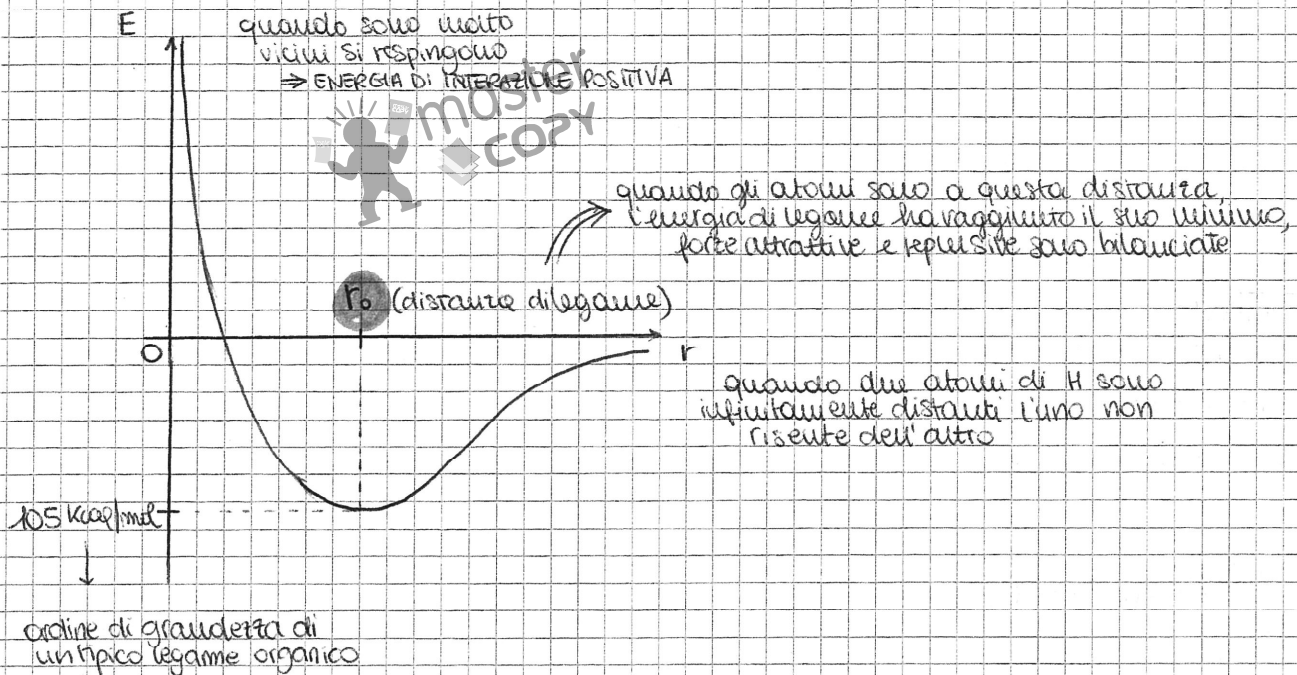 E
quando sono molto
vicini si respingono
⇒ ENERGIA DI INTERAZIONE POSITIVA
master
COPY
quando gli atomi sono a questa distanza,
l'energia di legame ha raggiunto il suo minimo,
forze attrattive e repulsive sono bilanciate
r₀ (distanza di legame)
O
r
quando due atomi di H sono
infinitamente distanti l'uno non
risente dell'altro
105 Kcal/mol
ordine di grandezza di
un tipico legame organico